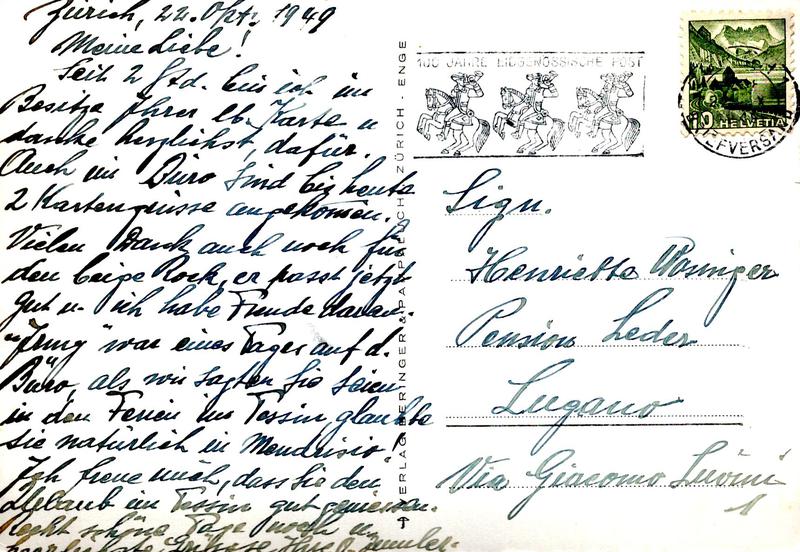 Zürich, 22. Okt. 1949
Meine Liebe!
Seit 2 Std. bin ich im
Besitze Ihrer lb. Karte u
danke herzlichst, dafür.
Auch im Büro sind bis heute
2 Kartengrüsse angekommen.
Vielen Dank auch noch für
den beige Rock, er passt jetzt
gut u. ich habe Freude daran.
"Irmy" war eines Tages auf d.
Büro, als wir sagten Sie seien
in den Ferien im Tessin glaubte
sie natürlich in Mendrisio!
Ich freue mich, dass Sie den
Urlaub im Tessin gut geniessen.
recht schöne Tage noch u.
Grüsse Ihre
VERLAG BERINGER & PAMPALUCHI, ZÜRICH - ENGE
100 JAHRE EIDGENÖSSISCHE POST
10 HELVETIA
BRIEFVERSAND
Sign.
Henriette Wosinger
Pension Leder
Lugano
Via Giacomo Luvini
1